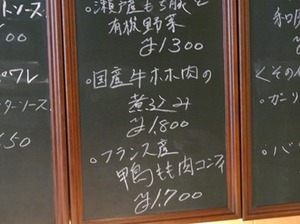 トソース
ポワレ
ターソース
50
・瀬戸もち豚と
有機野菜
¥1300
・国産牛ホホ肉の
煮込み
¥1,800
・フランス産
鴨もも肉コンフィ
¥1,700
和
くその
・ガーリ
・バ